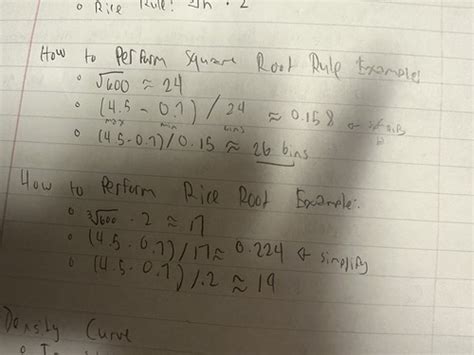 o Rice Rule: ∛n · 2
How to Perform Square Root Rule Example:
o √600 ≈ 24
o (4.5 - 0.7) / 24 ≈ 0.158 ←
max min bins
o (4.5 - 0.7) / 0.15 ≈ 26 bins
How to Perform Rice Root Example:
o ∛600 · 2 ≈ 17
o (4.5 - 0.7) / 17 ≈ 0.224 ← simplify
o (4.5 - 0.7) / .2 ≈ 19
Density Curve